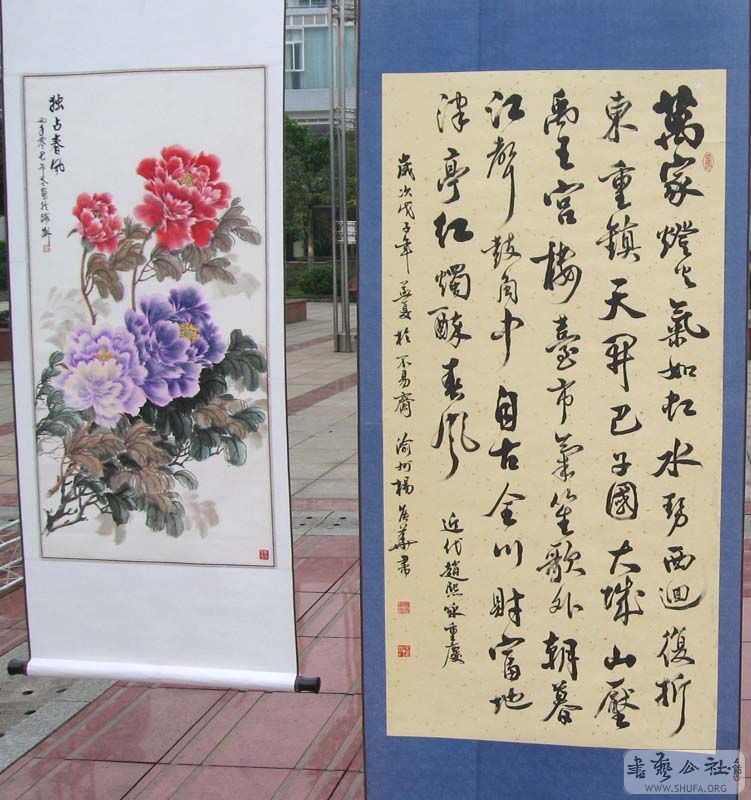 萬家燈火氣如虹水勢西迴復折
東重鎮天開巴子國大城山壓
禹王宮樓臺市氣笙歌外朝暮
江聲鼓角中自古全川財富地
津亭紅燭醉春風 近代趙熙咏重慶
歲次戊子年孟夏於不易齋渝州楊華書
独占春风
書藝公社
WWW.SHUFA.ORG